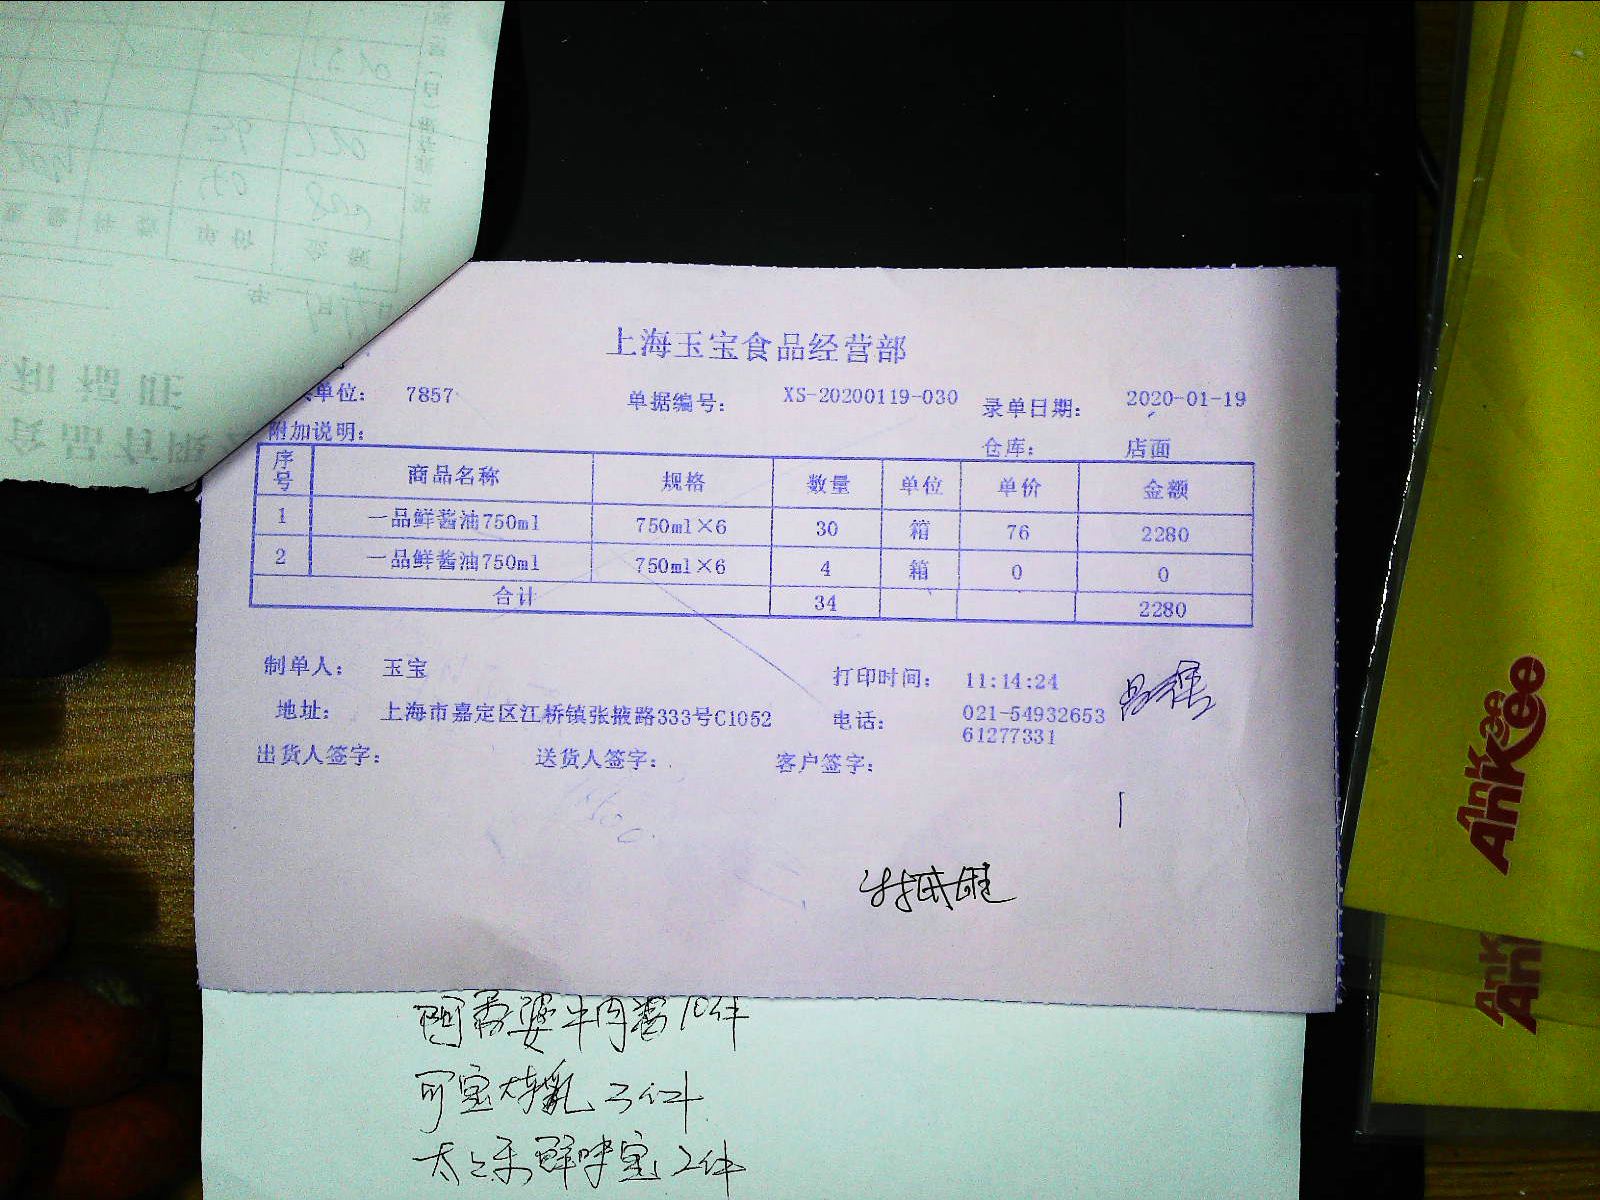 上海玉宝食品经营部
单位： 7857 单据编号： XS-20200119-030 录单日期： 2020-01-19
附加说明： 仓库： 店面
序号 商品名称 规格 数量 单位 单价 金额
1 一品鲜酱油750ml 750ml×6 30 箱 76 2280
2 一品鲜酱油750ml 750ml×6 4 箱 0 0
合计 34 2280
制单人： 玉宝 打印时间： 11:14:24
地址： 上海市嘉定区江桥镇张掖路333号C1052 电话： 021-54932653
61277331
出货人签字： 送货人签字： 客户签字：
阿香婆牛肉酱10件
可宝炼乳3件
太太乐鲜味宝2件
AnKee
AnKee